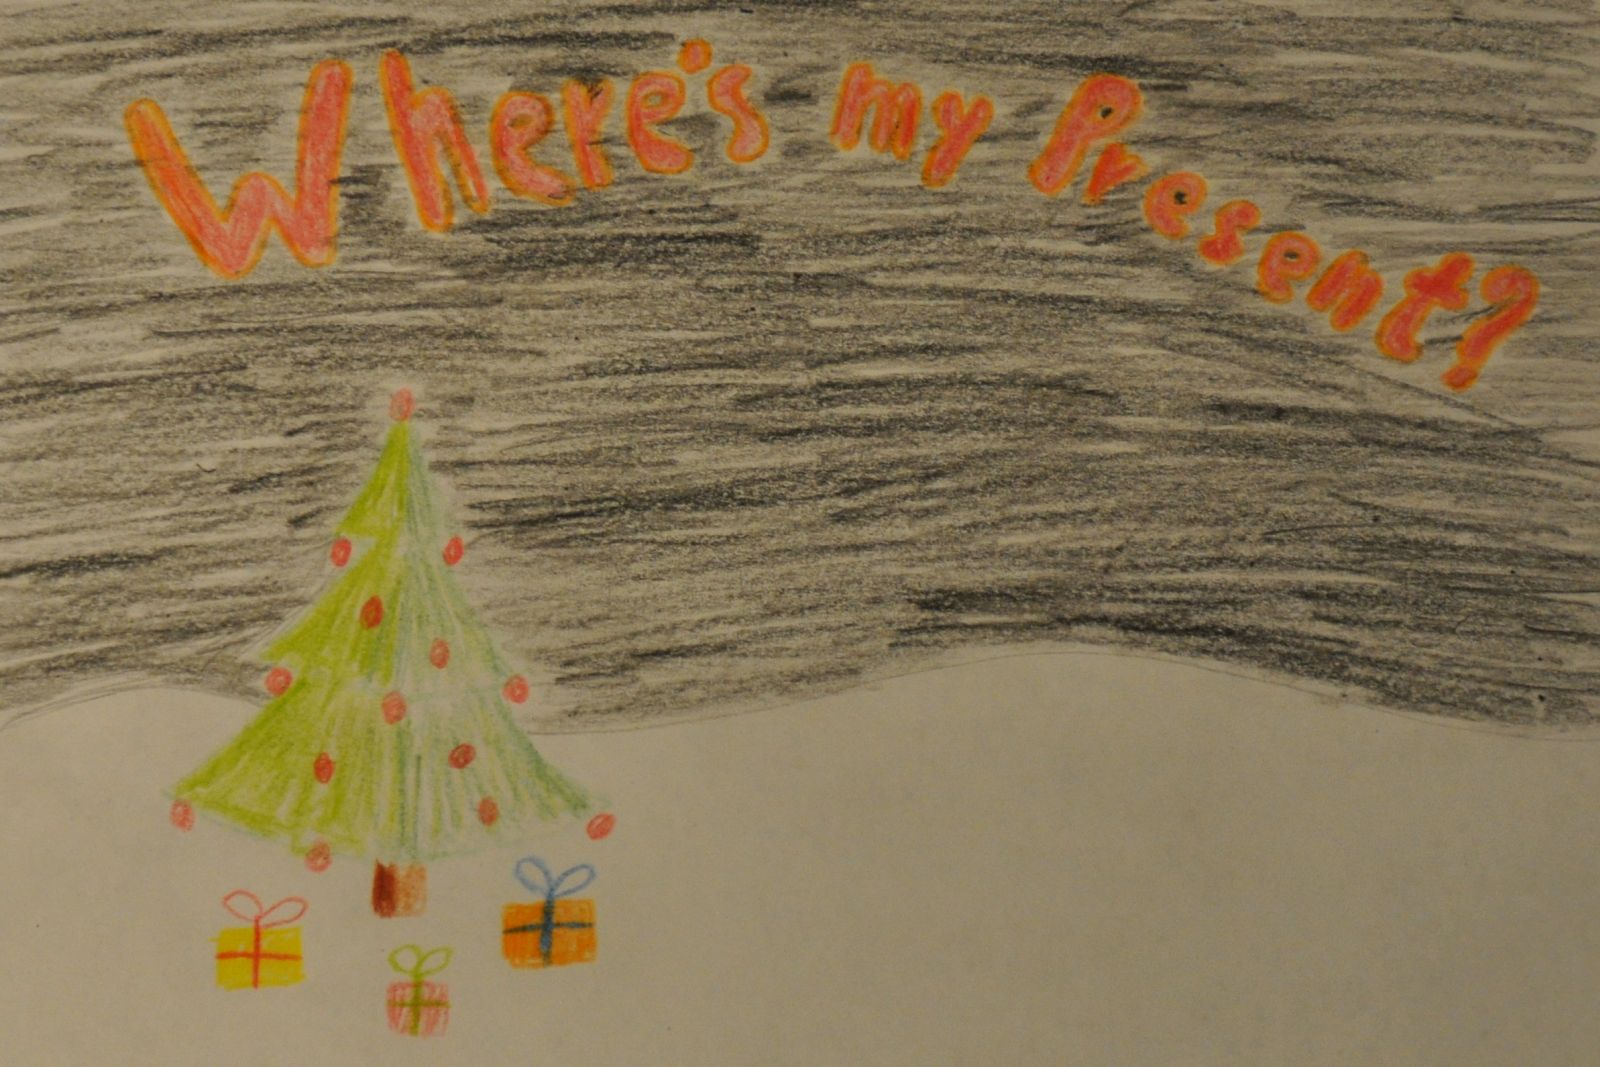 Where's my Present?